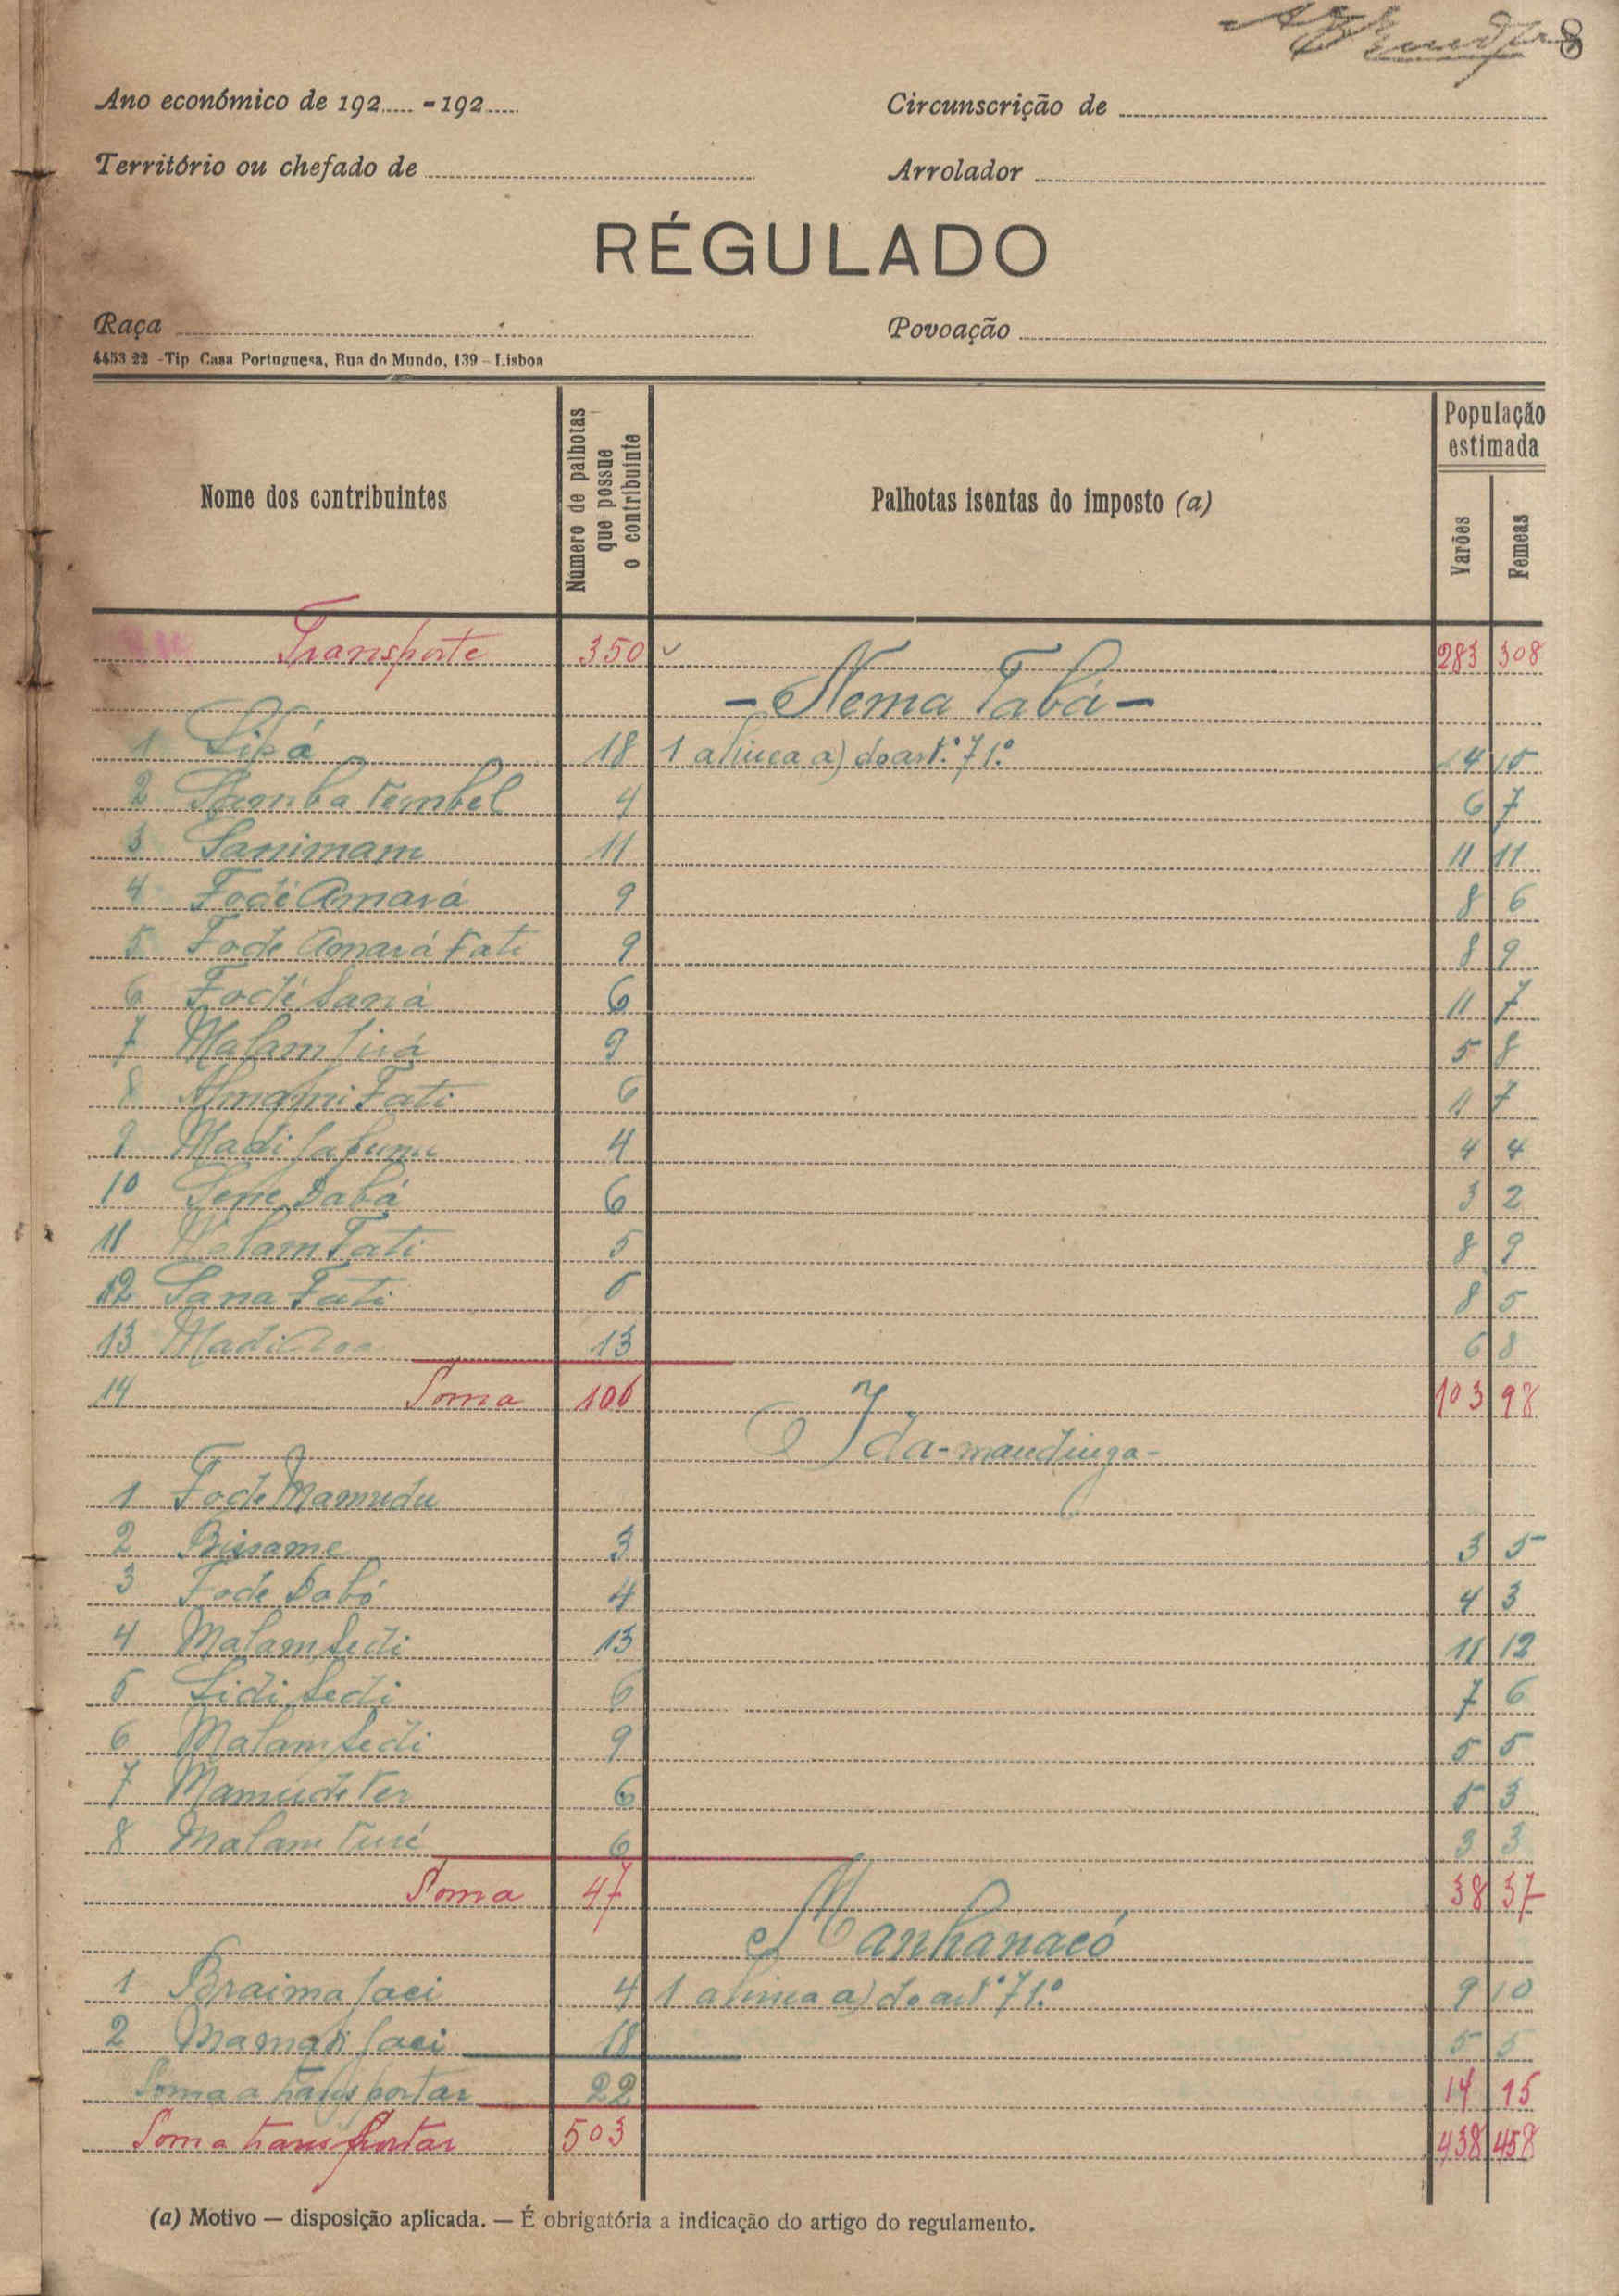 8
Ano económico de 192..... - 192.....
Circunscrição de
Território ou chefado de
Arrolador
RÉGULADO
Raça
Povoação
4453 22 - Tip Casa Portuguesa, Rua do Mundo, 139 - Lisboa
Nome dos contribuintes
Número de palhotas que possue o contribuinte
Palhotas isentas do imposto (a)
População estimada
Varões
Femeas
Transporte 350 283 308
- Nema Tabá -
1 18 1 alinea a) do artº. 71.º 14 10
2 Samba 4 6 7
3 Sanimam 11 11 11
4 Fodé Amará 9 8 6
5 Fode Amará Fati 9 8 9
6 Fodé Saná 6 11 7
7 Malam 9 5 8
8 Almami Fati 6 11 7
9 Madi 4 4 4
10 Sene Dabá 6 3 2
11 Malam Fati 5 8 9
12 Sana Fati 6 8 5
13 Madi 13 6 8
14 Soma 106 103 98
Ida-mandinga-
1 Fode Mamudu
2 3 3 5
3 Fodé Dabó 4 4 3
4 Malam Sedi 13 11 12
5 Sidi Sedi 6 7 6
6 Malam Sedi 9 5 5
7 6 5 3
8 Malam Turé 6 3 3
Soma 47 38 37
Manhanacó
1 Braima Jaci 4 1 alinea a) do artº 71.º 9 10
2 Mamadi Jaci 18 5 5
Soma a transportar 22 14 15
Soma transportar 503 438 458
(a) Motivo — disposição aplicada. — É obrigatória a indicação do artigo do regulamento.